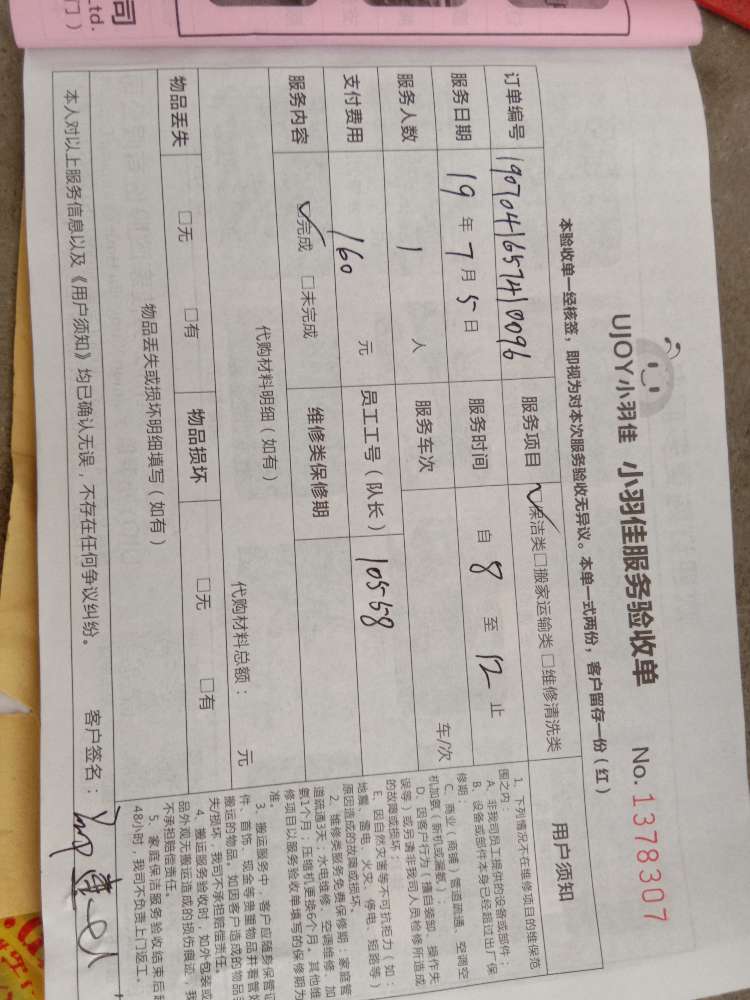 司
Ltd.
门）
UJOY小羽佳 小羽佳服务验收单 No.1378307
本验收单一经核签，即视为对本次服务验收无异议。本单一式两份，客户留存一份（红）
订单编号 1907041657410096 服务项目 ☑保洁类□搬家运输类 □维修清洗类
服务日期 19 年 7 月 5 日 服务时间 自 8 至 12 止
服务人数 1 人 服务车次 车/次
支付费用 160 元 员工工号（队长） 10558
服务内容 ☑完成 □未完成 维修类保修期
代购材料明细（如有）
代购材料总额： 元
物品丢失 □无 □有 物品损坏 □无 □有
物品丢失或损坏明细填写（如有）
本人对以上服务信息以及《用户须知》均已确认无误，不存在任何争议纠纷。 客户签名：
用户须知
1、下列情况不在维修项目的维保范
围之内：
A、非我司员工提供的设备或部件；
B、设备或部件本身已经超过出厂保
修期；
C、商业（商铺）管道疏通、空调空
机加氨（新机或漏氨）；
D、因客户行为（擅自装卸、操作失
误等）或另请非我司人员检修所造成
的故障或损坏；
E、因自然灾害等不可抗拒力（如：
地震、雷电、火灾、停电、短路等）
原因造成的故障或损坏。
2、维修类服务免费保修期：家庭管
道疏通3天；水电维修、空调维修、加
氨1个月；压缩机更换6个月，其他维
修项目以服务验收单填写的保修期为
准。
3、搬运服务中，客户应随身保管证
件、首饰、现金等贵重物品并看管好
搬运的物品。如因客户造成的物品丢
失/损坏，我司不承担赔偿责任。
4、搬运服务验收时，如外包装或
品外观无搬运造成的损伤痕迹，我
不承担赔偿责任。
5、家庭保洁服务验收结束后超
48小时，我司不负责上门返工。